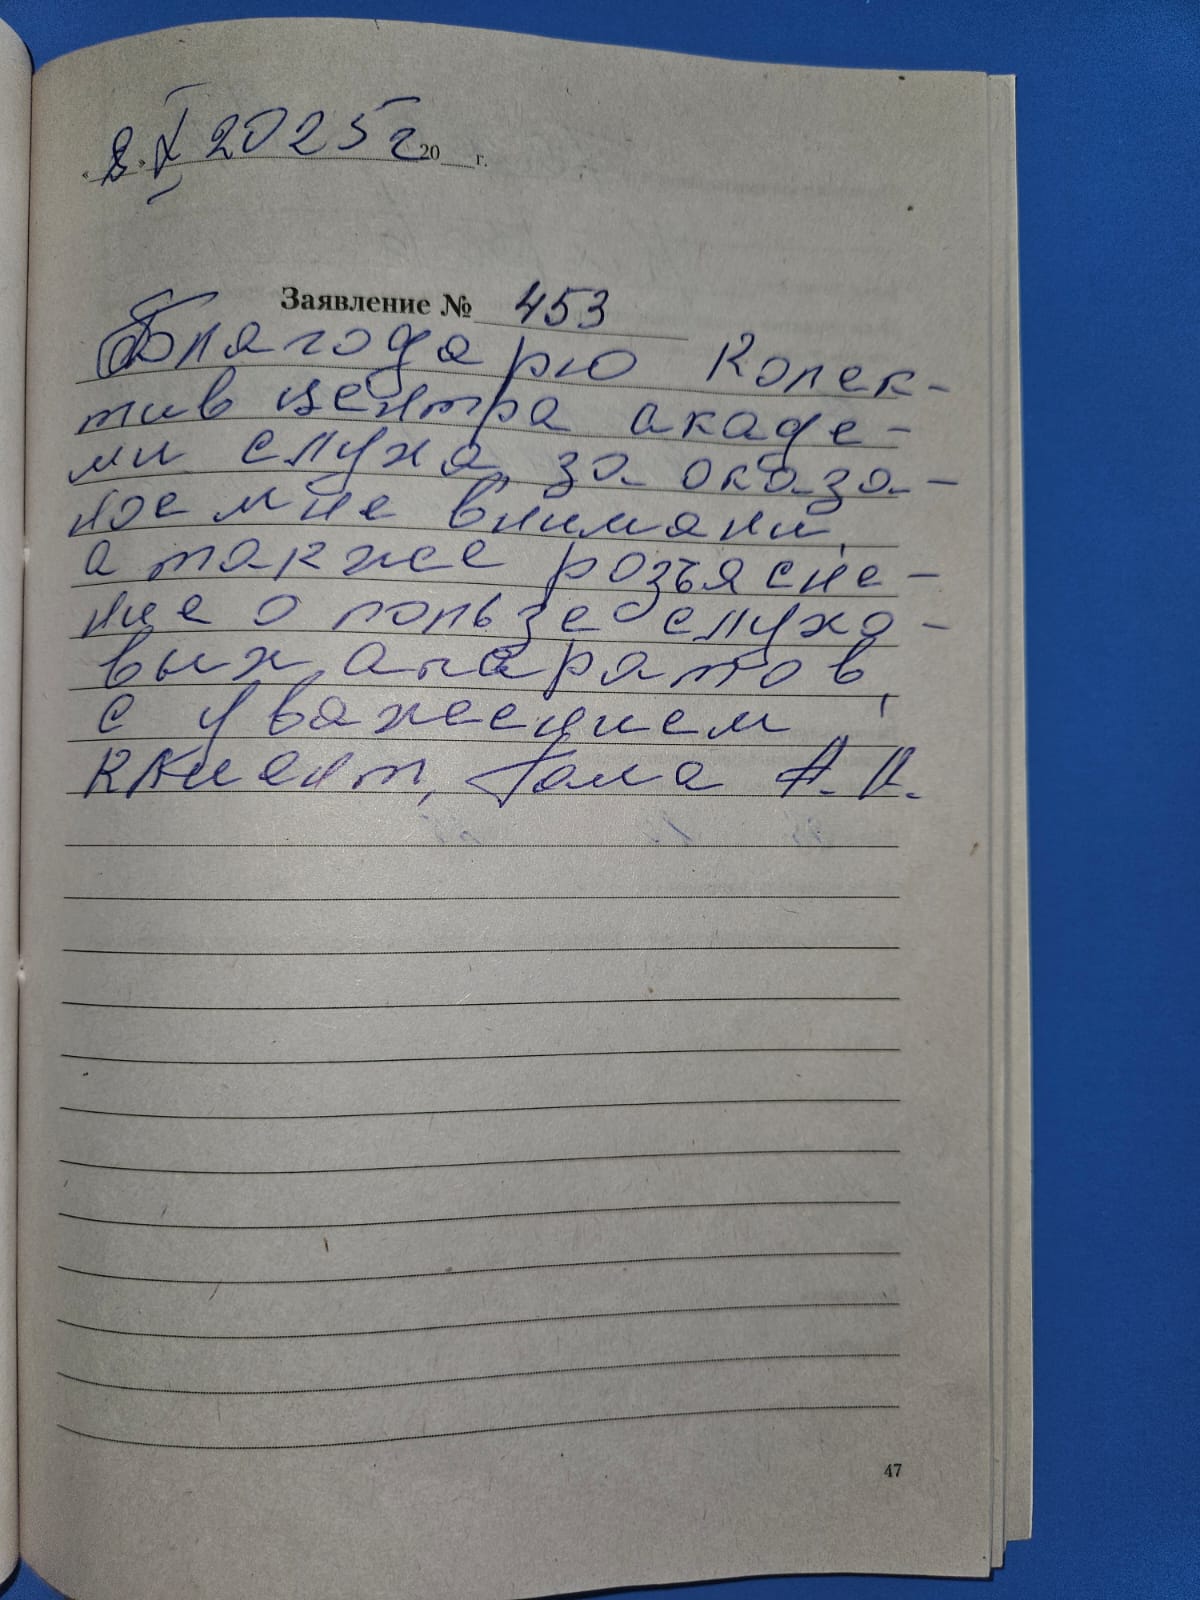 « 8 » X 2025 г 20 г.
Заявление № 453
Благодарю Колек-
тив центра акаде-
ми слуха, за оказа-
ное мне внимани,
а также розъясне-
ние о пользе слухо-
вых апаратов,
с уважением
клиент, А. А.
47